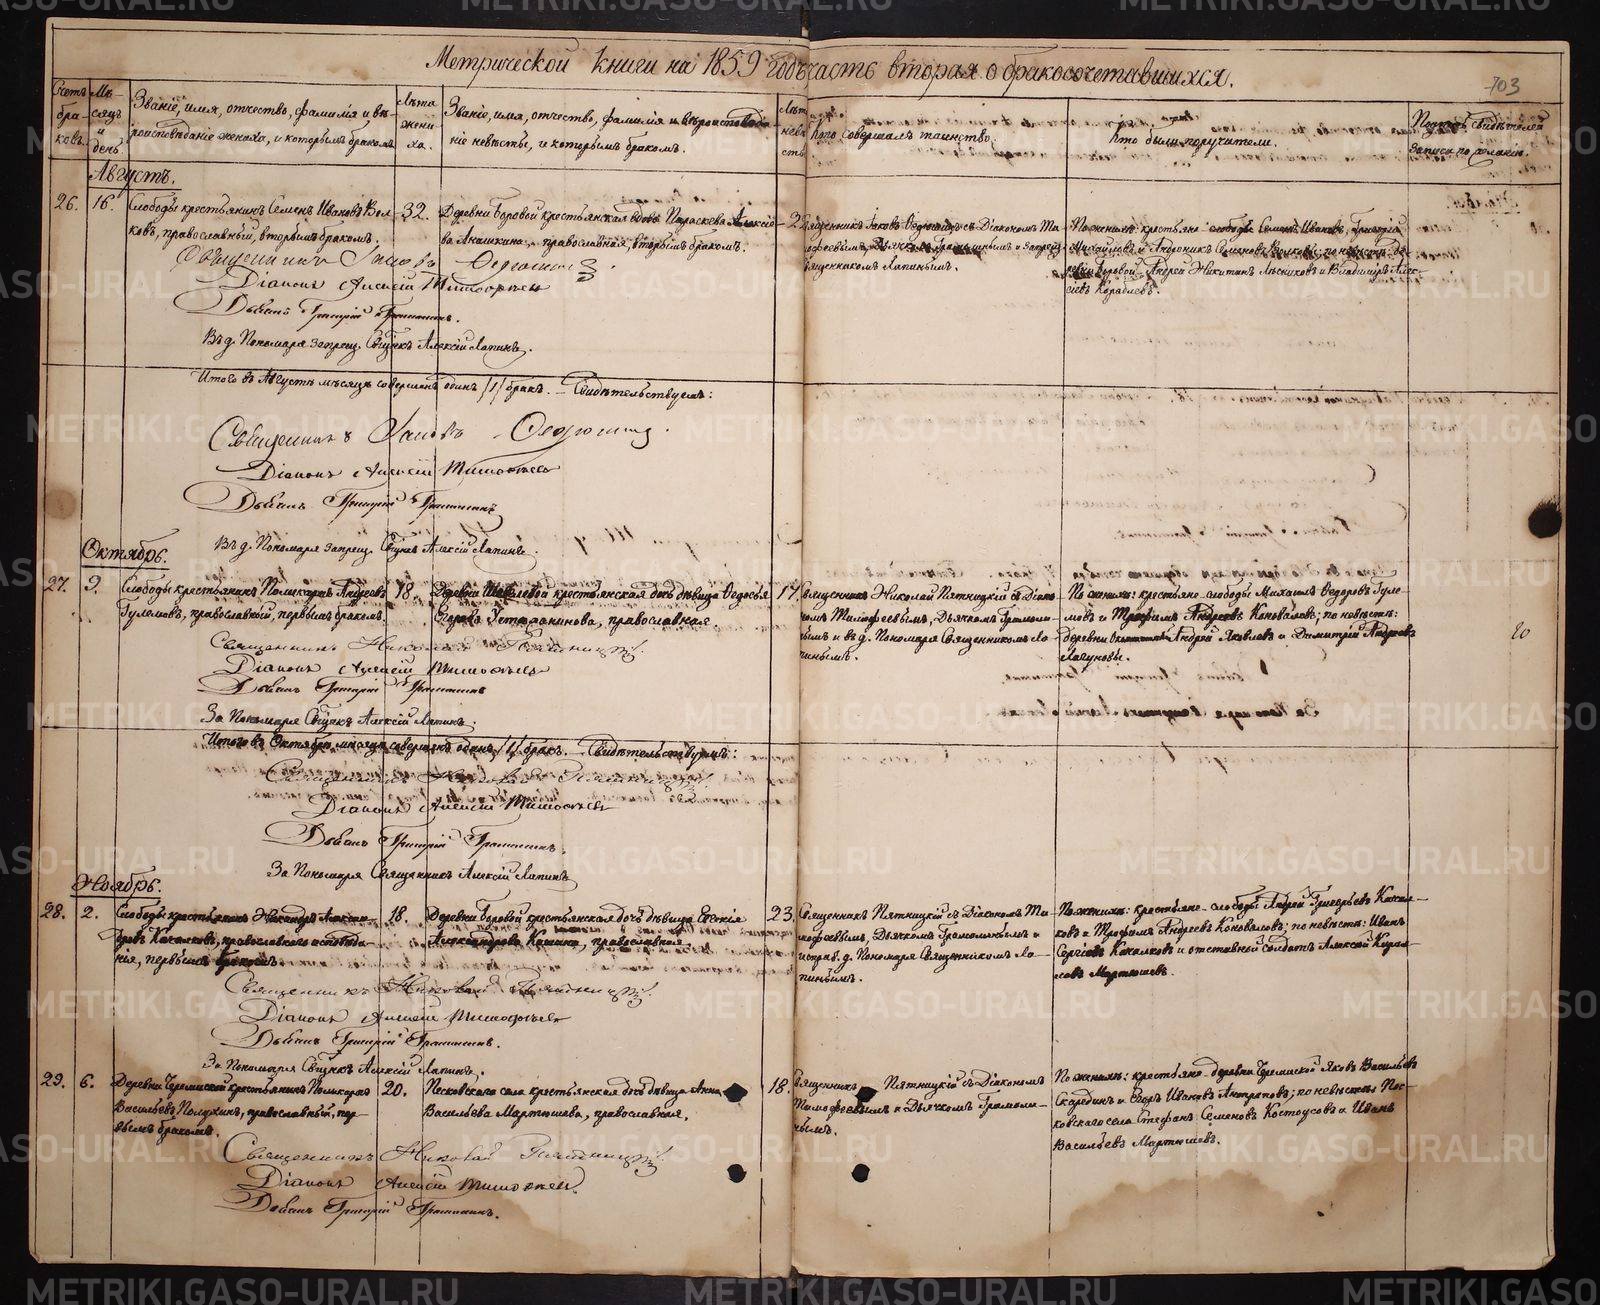 Метрической книги на 1859 годъ часть вторая о бракосочетавшихся.
103
Счетъ браковъ.
Мѣсяцъ и день.
Званіе, имя, отчество, фамилія и вѣроисповѣданіе жениха, и которымъ бракомъ.
Лѣта жениха.
Званіе, имя, отчество, фамилія и вѣроисповѣданіе невѣсты, и которымъ бракомъ.
Лѣта невѣсты
Кто совершалъ таинство.
Кто были поручители.
Подпись свидѣтелей записи по желанію.
Августъ.
26. 16.
Слободы крестьянинъ Семенъ Ивановъ Вол-
ковъ, православный, вторымъ бракомъ.
32.
Деревни Боровой крестьянская вдова Параскева Алексіе-
ва Аношкина, православная, вторымъ бракомъ.
2
Священникъ Іаковъ Ѳедюшинъ съ Діакономъ Ти-
моѳеевымъ, Дьячкомъ и запрещ.
Священникомъ Лапинымъ.
По женихѣ: крестьяне слободы Семенъ Ивановъ, Григорій
Михайловъ и Андроникъ Семеновъ Волковы; по невѣстѣ: де-
ревни Боровой Андрей Никитинъ и Владиміръ Алек-
сіевъ Кораблевъ.
Священникъ Іаковъ
Діаконъ Алексій Тимоѳеевъ
Дьячекъ Григорій
Въ д. Пономаря запрещ. Свщнкъ Алексій Лапинъ.
Итого въ Августѣ мѣсяцѣ совершенъ одинъ /1/ бракъ. — Свидѣтельствуемъ:
Священникъ Іаковъ
Діаконъ Алексій Тимоѳеевъ
Дьячекъ Григорій
Въ д. Пономаря запрещ. Свщнкъ Алексій Лапинъ.
Октябрь.
27. 9.
Слободы крестьянинъ Поликарпъ Андреевъ
Гуляловъ, православный, первымъ бракомъ.
18.
Деревни крестьянская дочь дѣвица Ѳедосья
Егорова Устюганинова, православная.
17.
Священникъ Николай Пятницкій съ Діако-
номъ Тимоѳеевымъ, Дьячкомъ
и въ д. Пономаря Священникомъ Ла-
пинымъ.
По женихѣ: крестьяне слободы Михаилъ Ѳедоровъ Гуля-
ловъ и Трофимъ Андреевъ Коноваловъ; по невѣстѣ:
деревни Андрей Яковлевъ и Димитрій Андреевъ
Лагуновы.
Священникъ Николай Пятницкій.
Діаконъ Алексій Тимоѳеевъ
Дьячекъ Григорій
За Пономаря Свщнкъ Алексій Лапинъ.
Итого въ Октябрѣ мѣсяцѣ совершенъ одинъ /1/ бракъ. — Свидѣтельствуемъ:
Священникъ Николай Пятницкій.
Діаконъ Алексій Тимоѳеевъ
Дьячекъ Григорій
За Пономаря Священникъ Алексій Лапинъ
Ноябрь.
28. 2.
Слободы крестьянинъ Никандръ Алексан-
дровъ Кокалковъ, православнаго исповѣда-
нія, первымъ бракомъ.
18.
Деревни Боровой крестьянская дочь дѣвица Евгенія
Александрова Камина, православная.
23.
Священникъ Пятницкій съ Діакономъ Ти-
моѳеевымъ, Дьячкомъ и
исправ. д. Пономаря Священникомъ Ла-
пинымъ.
По женихѣ: крестьяне слободы Андрей Григорьевъ Кокал-
ковъ и Трофимъ Андреевъ Коноваловъ; по невѣстѣ: Иванъ
Сергіевъ Кокалковъ и отставной солдатъ Алексѣй
Мартюшевъ.
Священникъ Николай Пятницкій.
Діаконъ Алексій Тимоѳеевъ
Дьячекъ Григорій
За Пономаря Свщнкъ Алексій Лапинъ.
29. 6.
Деревни Черемисской крестьянинъ Поликарпъ
Васильевъ Полухинъ, православный, пер-
вымъ бракомъ.
20.
Песковскаго села крестьянская дочь дѣвица Анна
Васильева Мартюшева, православная.
18.
Священникъ Пятницкій съ Діакономъ
Тимоѳеевымъ и Дьячкомъ
По женихѣ: крестьяне деревни Черемисской Яковъ Васильевъ
Скарединъ и Егоръ Ивановъ Антроповъ; по невѣстѣ: Пес-
ковскаго села Стефанъ Семеновъ Костоусовъ и Иванъ
Васильевъ Мартюшовъ.
Священникъ Николай Пятницкій.
Діаконъ Алексій Тимоѳеевъ.
Дьячекъ Григорій
METRIKI.GASO-URAL.RU